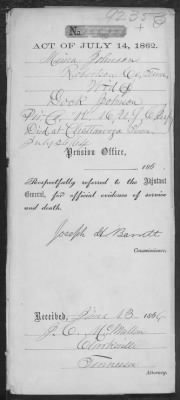 92358
No.
ACT OF JULY 14, 1862.
Johnson
Robertson Co, Tenn,
Wid Of
Dock Johnson
Died at Chattanooga Tenn
July 64
Pension Office,
186
Respectfully referred to the Adjutant
General, for official evidence of service
and death.
Joseph H Barrett
Commissioner.
Received, June 13 186
J. C. McMullen
Clarksville
Tennessee
Attorney.